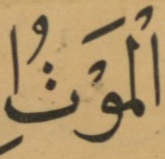 اْلمَوْتُ ا